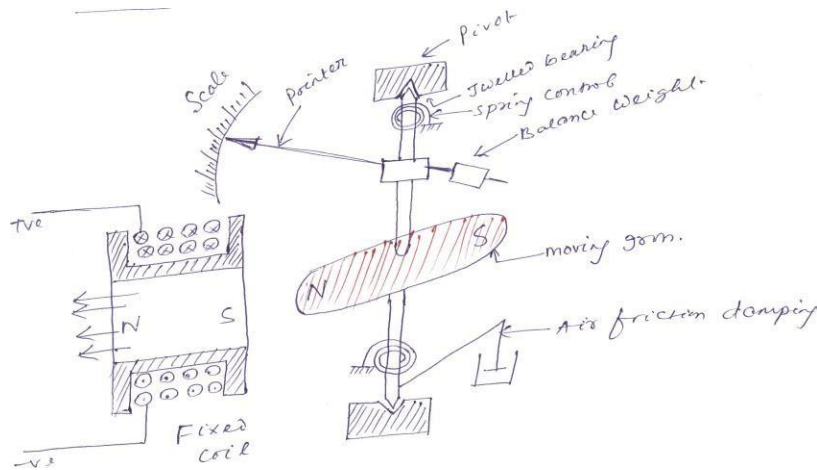 Pivot
Jwelled bearing
Spring control
Balance weight.
Scale
Pointer
+ve
N
S
N
S
moving iron.
Air friction damping
Fixed
coil
-ve